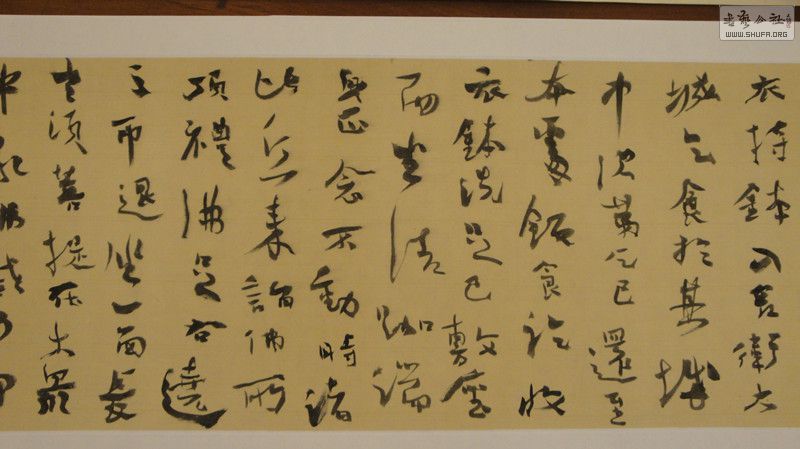 衣持鉢入舍衛大
城乞食於其城
中次第乞已還至
本處飯食訖收
衣鉢洗足已敷座
而坐結跏端
身正念不動時諸
比丘来詣佛所
頂禮佛足右遶
三帀退坐一面長
老須菩提在大眾
中
书艺公社
WWW.SHUFA.ORG